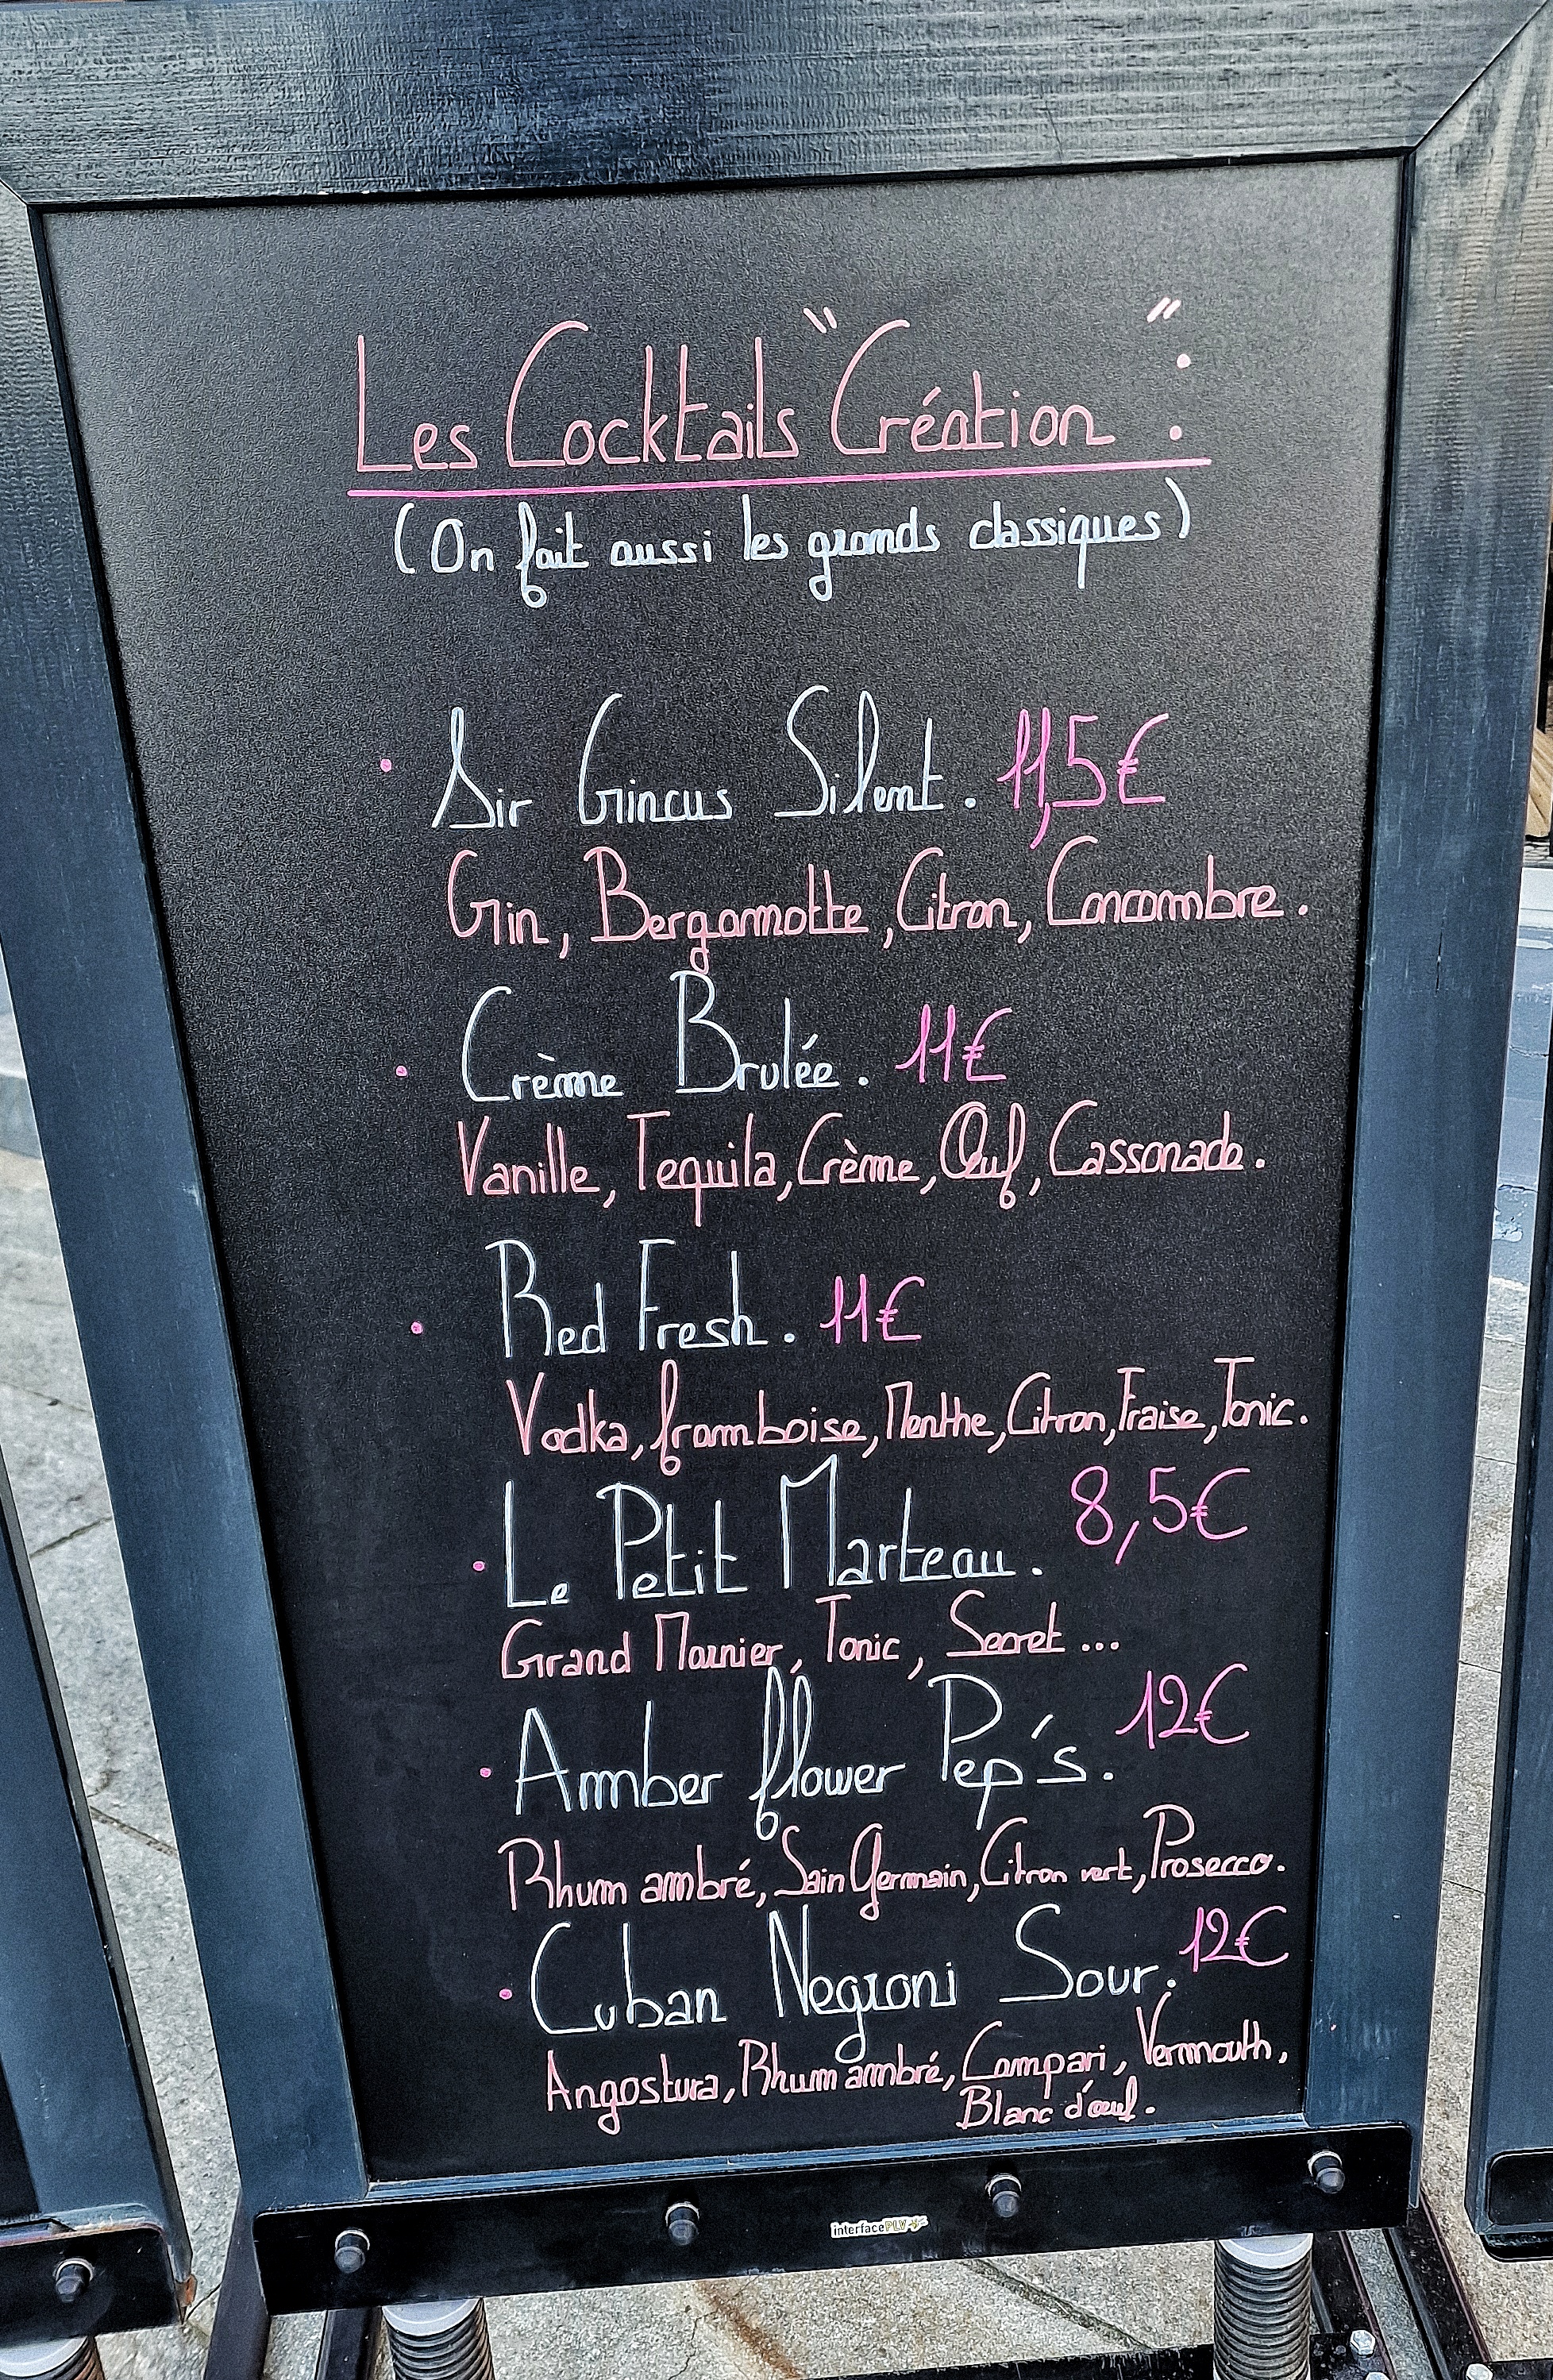 Les Cocktails "Création" :
(On fait aussi les grands classiques)
• Sir Gincus Silent. 11,5€
Gin, Bergamotte, Citron, Concombre.
• Crème Brulée. 11€
Vanille, Tequila, Crème, Œuf, Cassonade.
• Red Fresh. 11€
Vodka, framboise, Menthe, Citron, Fraise, Tonic.
• Le Petit Marteau. 8,5€
Grand Marnier, Tonic, Secret ...
• Amber flower Pep's. 12€
Rhum ambré, Sain Germain, Citron vert, Prosecco.
• Cuban Negroni Sour. 12€
Angostura, Rhum ambré, Campari, Vermouth,
Blanc d'œuf.
interfacePLV